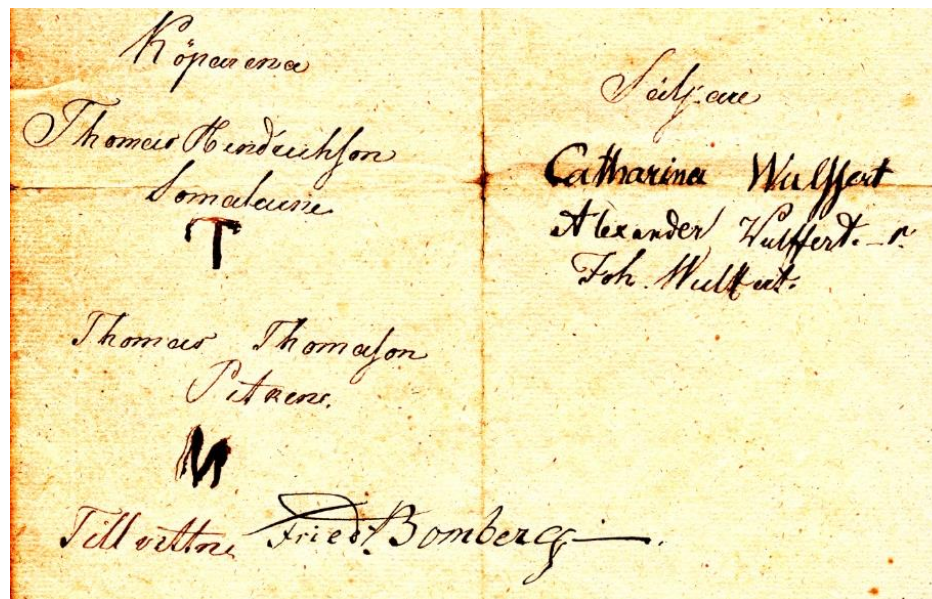 Köparena
Thomas Hindrichson
Somalaine
T
Thomas Thomason
Pitkene.
M
Till vittne Friedr. Bomberg
Säljare
Catharina Wulffert
Alexander Wulffert.
Joh. Wulffert.